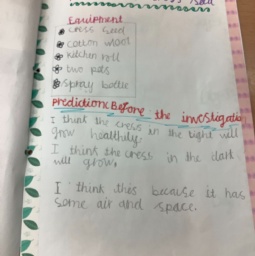 Equipment
cress seed
cotton wool
kitchen roll
two pots
spray bottle
Prediction: Before the investigatio
I think the cress in the light will
grow healthily.
I think the cress in the dark
will grow.
I think this because it has
some air and space.